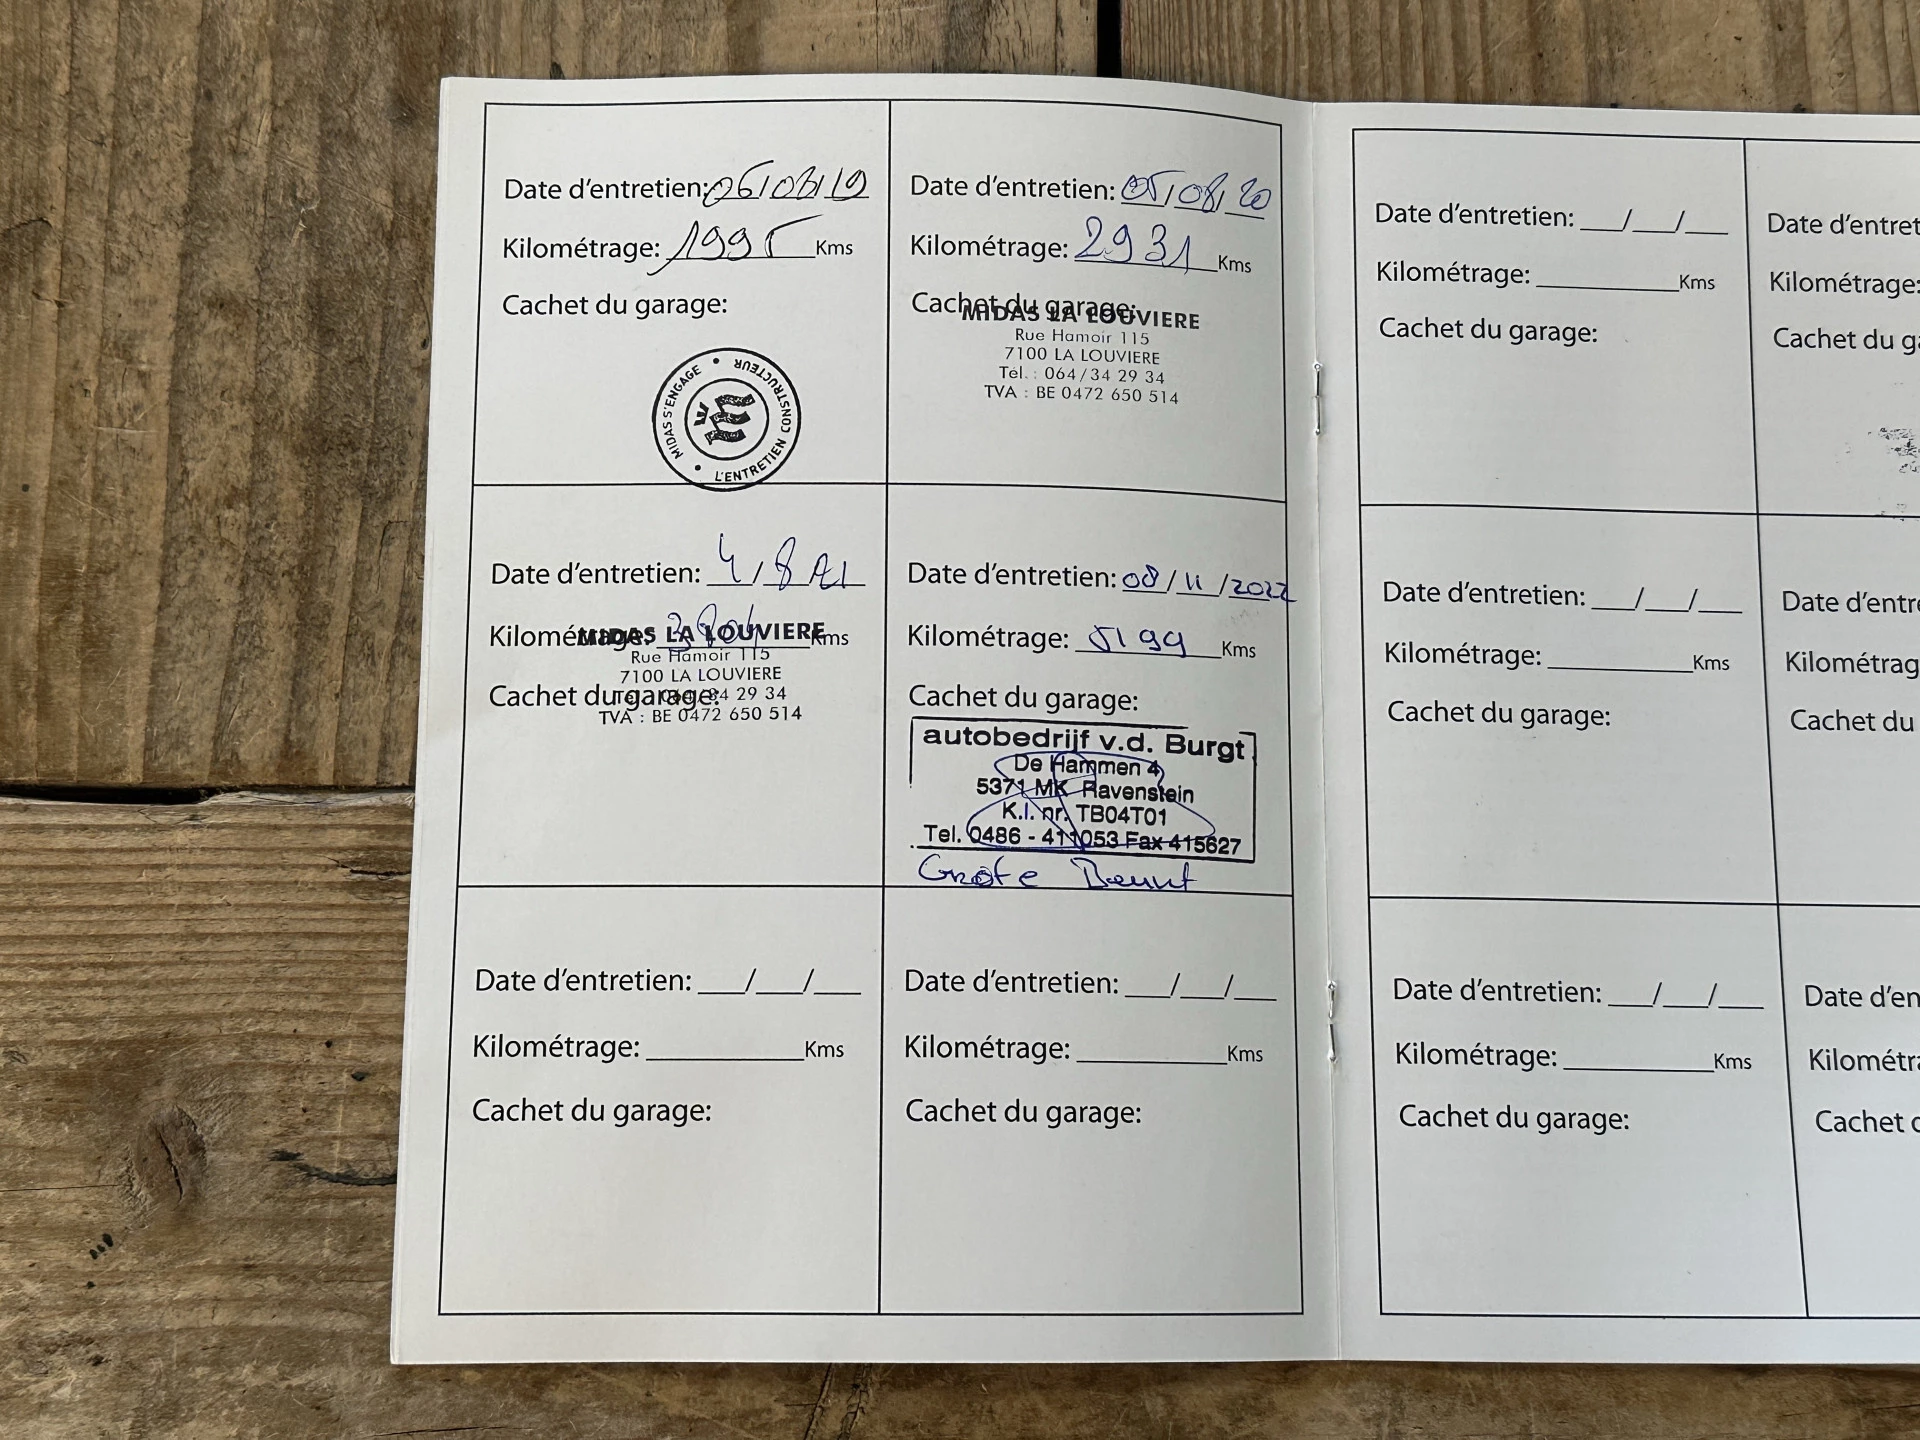 Date d'entretien: 06/08/19
Kilométrage: 1995 Kms
Cachet du garage:
MIDAS S'ENGAGE • L'ENTRETIEN CONSTRUCTEUR •
Date d'entretien: 05/08/20
Kilométrage: 2931 Kms
Cachet du garage:
MIDAS LA LOUVIERE
Rue Hamoir 115
7100 LA LOUVIERE
Tél. : 064/34 29 34
TVA : BE 0472 650 514
Date d'entretien: 4/8/21
Kilométrage: Kms
MIDAS LA LOUVIERE
Rue Hamoir 115
7100 LA LOUVIERE
Cachet du garage:
Tél. : 064/34 29 34
TVA : BE 0472 650 514
Date d'entretien: 08/11/2022
Kilométrage: 5199 Kms
Cachet du garage:
autobedrijf v.d. Burgt
De Hammen 4
5371 MK Ravenstein
K.I. nr. TB04T01
Tel. 0486 - 411053 Fax 415627
Grote Beurt
Date d'entretien: __/__/__
Kilométrage: ________Kms
Cachet du garage:
Date d'entretien: __/__/__
Kilométrage: ________Kms
Cachet du garage:
Date d'entretien: __/__/__
Kilométrage: ________Kms
Cachet du garage:
Date d'entret
Kilométrage:
Cachet du ga
Date d'entretien: __/__/__
Kilométrage: ________Kms
Cachet du garage:
Date d'entre
Kilométrag
Cachet du
Date d'entretien: __/__/__
Kilométrage: ________Kms
Cachet du garage:
Date d'en
Kilométra
Cachet d